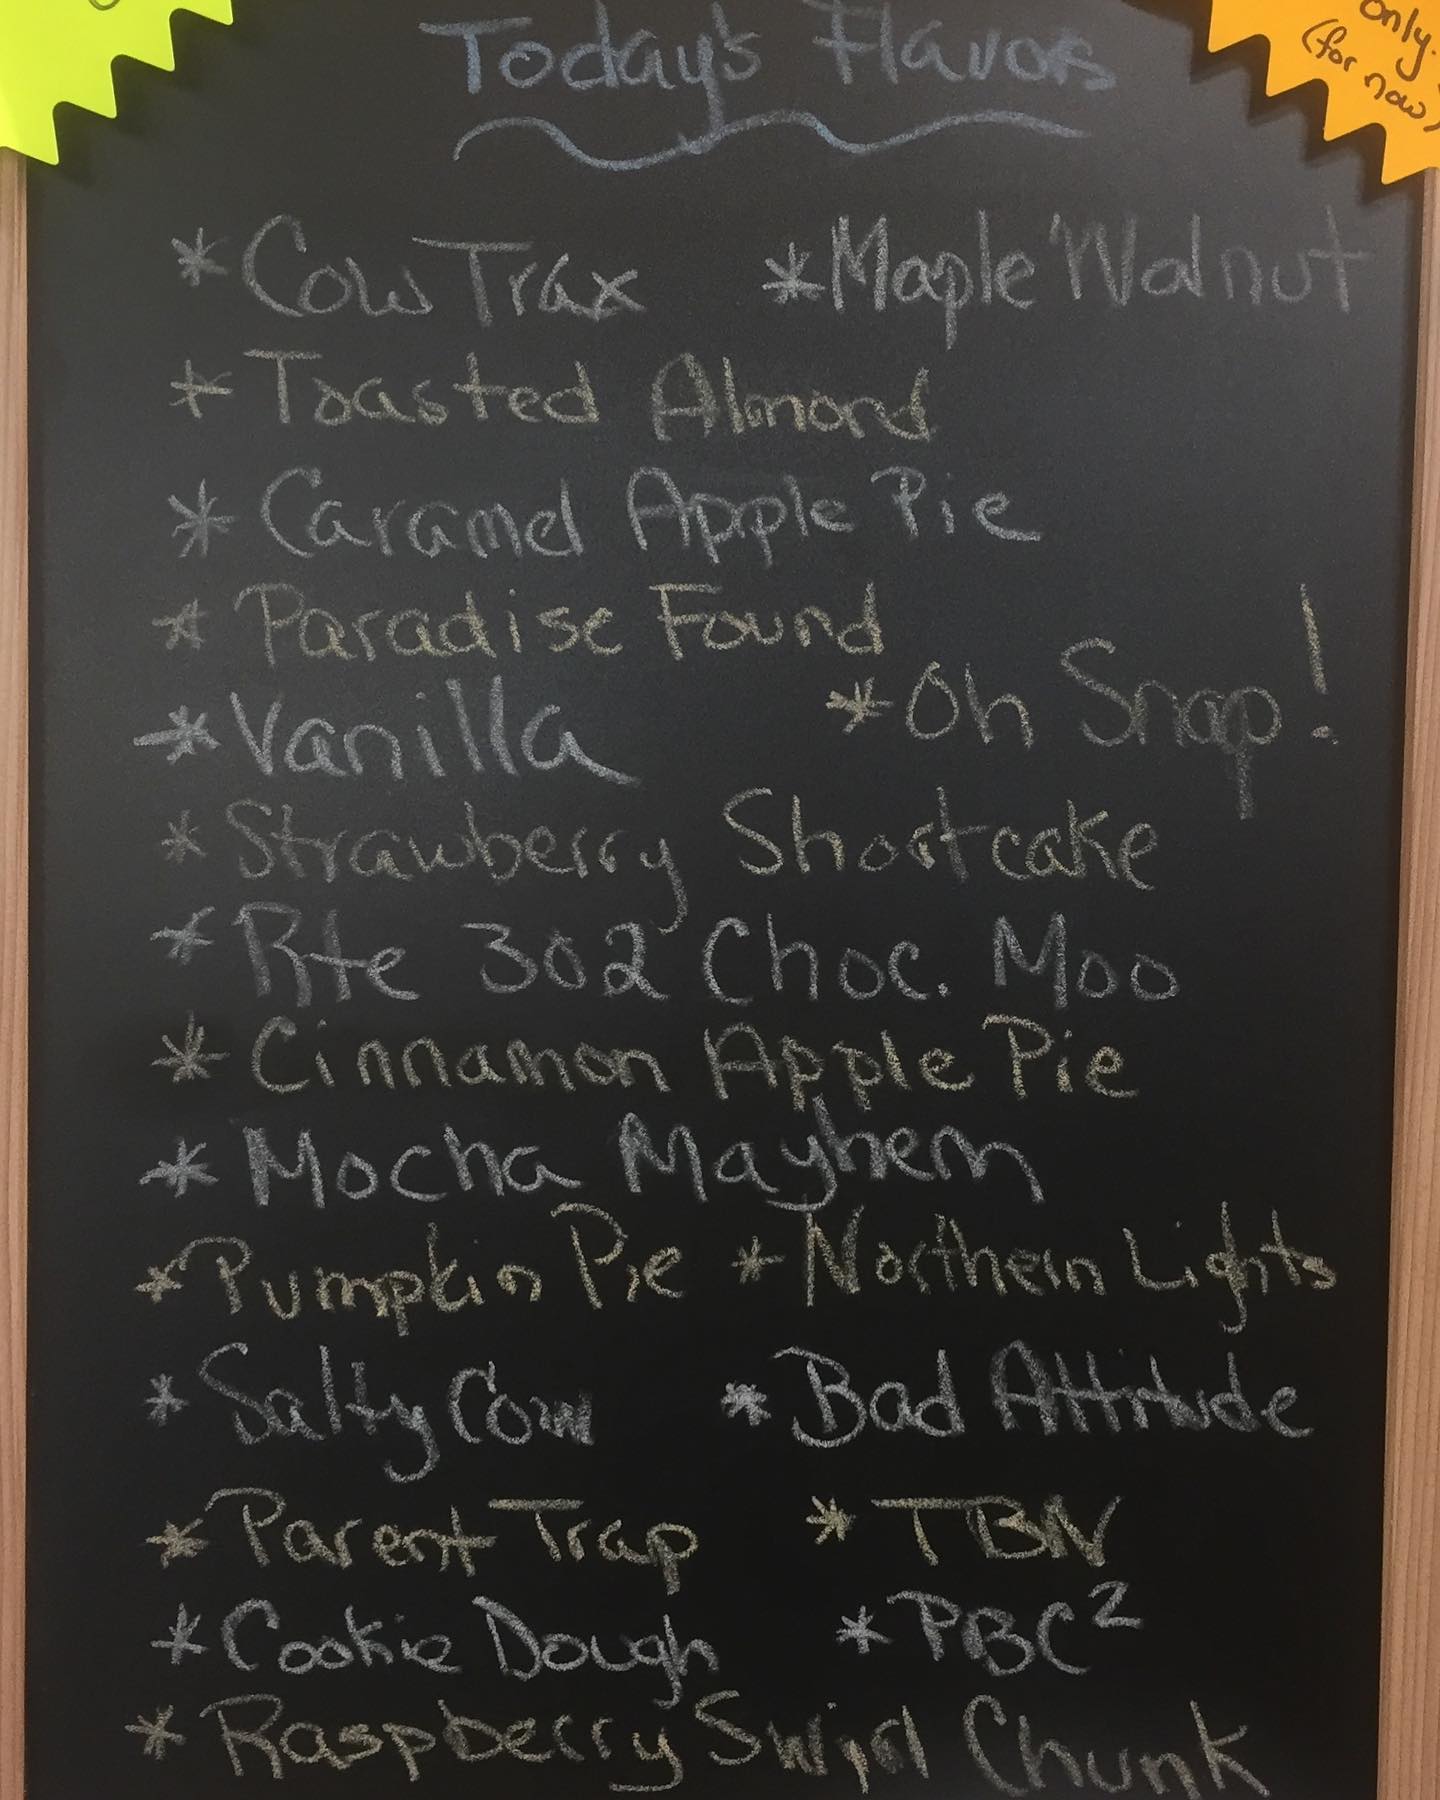 Today's Flavors
only.
(for now)
* Cow Trax * Maple Walnut
* Toasted Almond
* Caramel Apple Pie
* Paradise Found
* Vanilla * Oh Snap!
* Strawberry Shortcake
* Rte 302 Choc. Moo
* Cinnamon Apple Pie
* Mocha Mayhem
* Pumpkin Pie * Northern Lights
* Salty Cow * Bad Attitude
* Parent Trap * TBN
* Cookie Dough * PBC²
* Raspberry Swirl Chunk